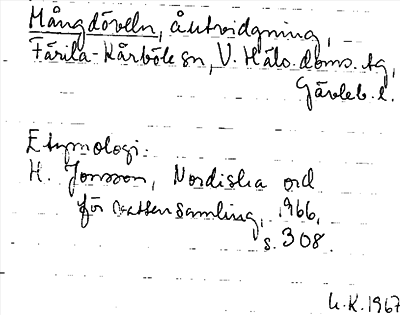 Mångdöveln, åutvidgning,
Färila-Kårböle sn, V. Häls. doms. tg,
Gävleb. l.
Etymologi:
H. Jonsson, Nordiska ord
för vattensamling, 1966,
s. 308.
U.K. 1967